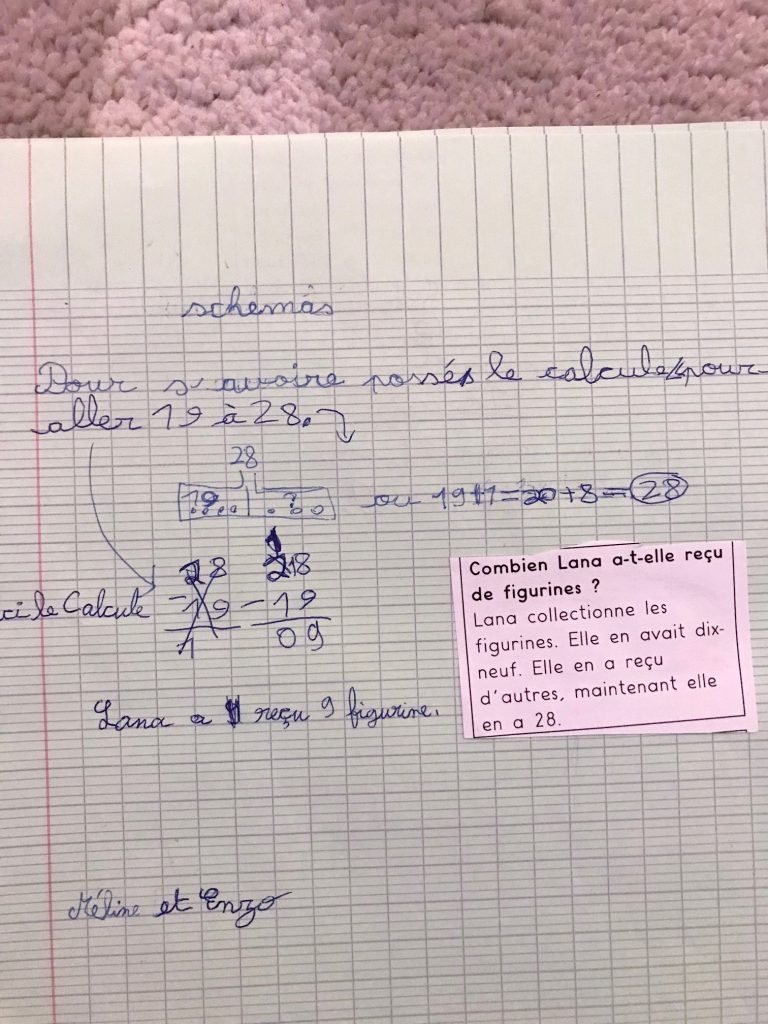 schémas
Pour s'avoire possés le calcule pour
aller 19 à 28.
28
19 ?
ou 19+1=20+8=28
28 218
-19 -19
1 09
ci le Calcule
Lana a reçu 9 figurine.
Combien Lana a-t-elle reçu
de figurines ?
Lana collectionne les
figurines. Elle en avait dix-
neuf. Elle en a reçu
d'autres, maintenant elle
en a 28.
Méline et Enzo